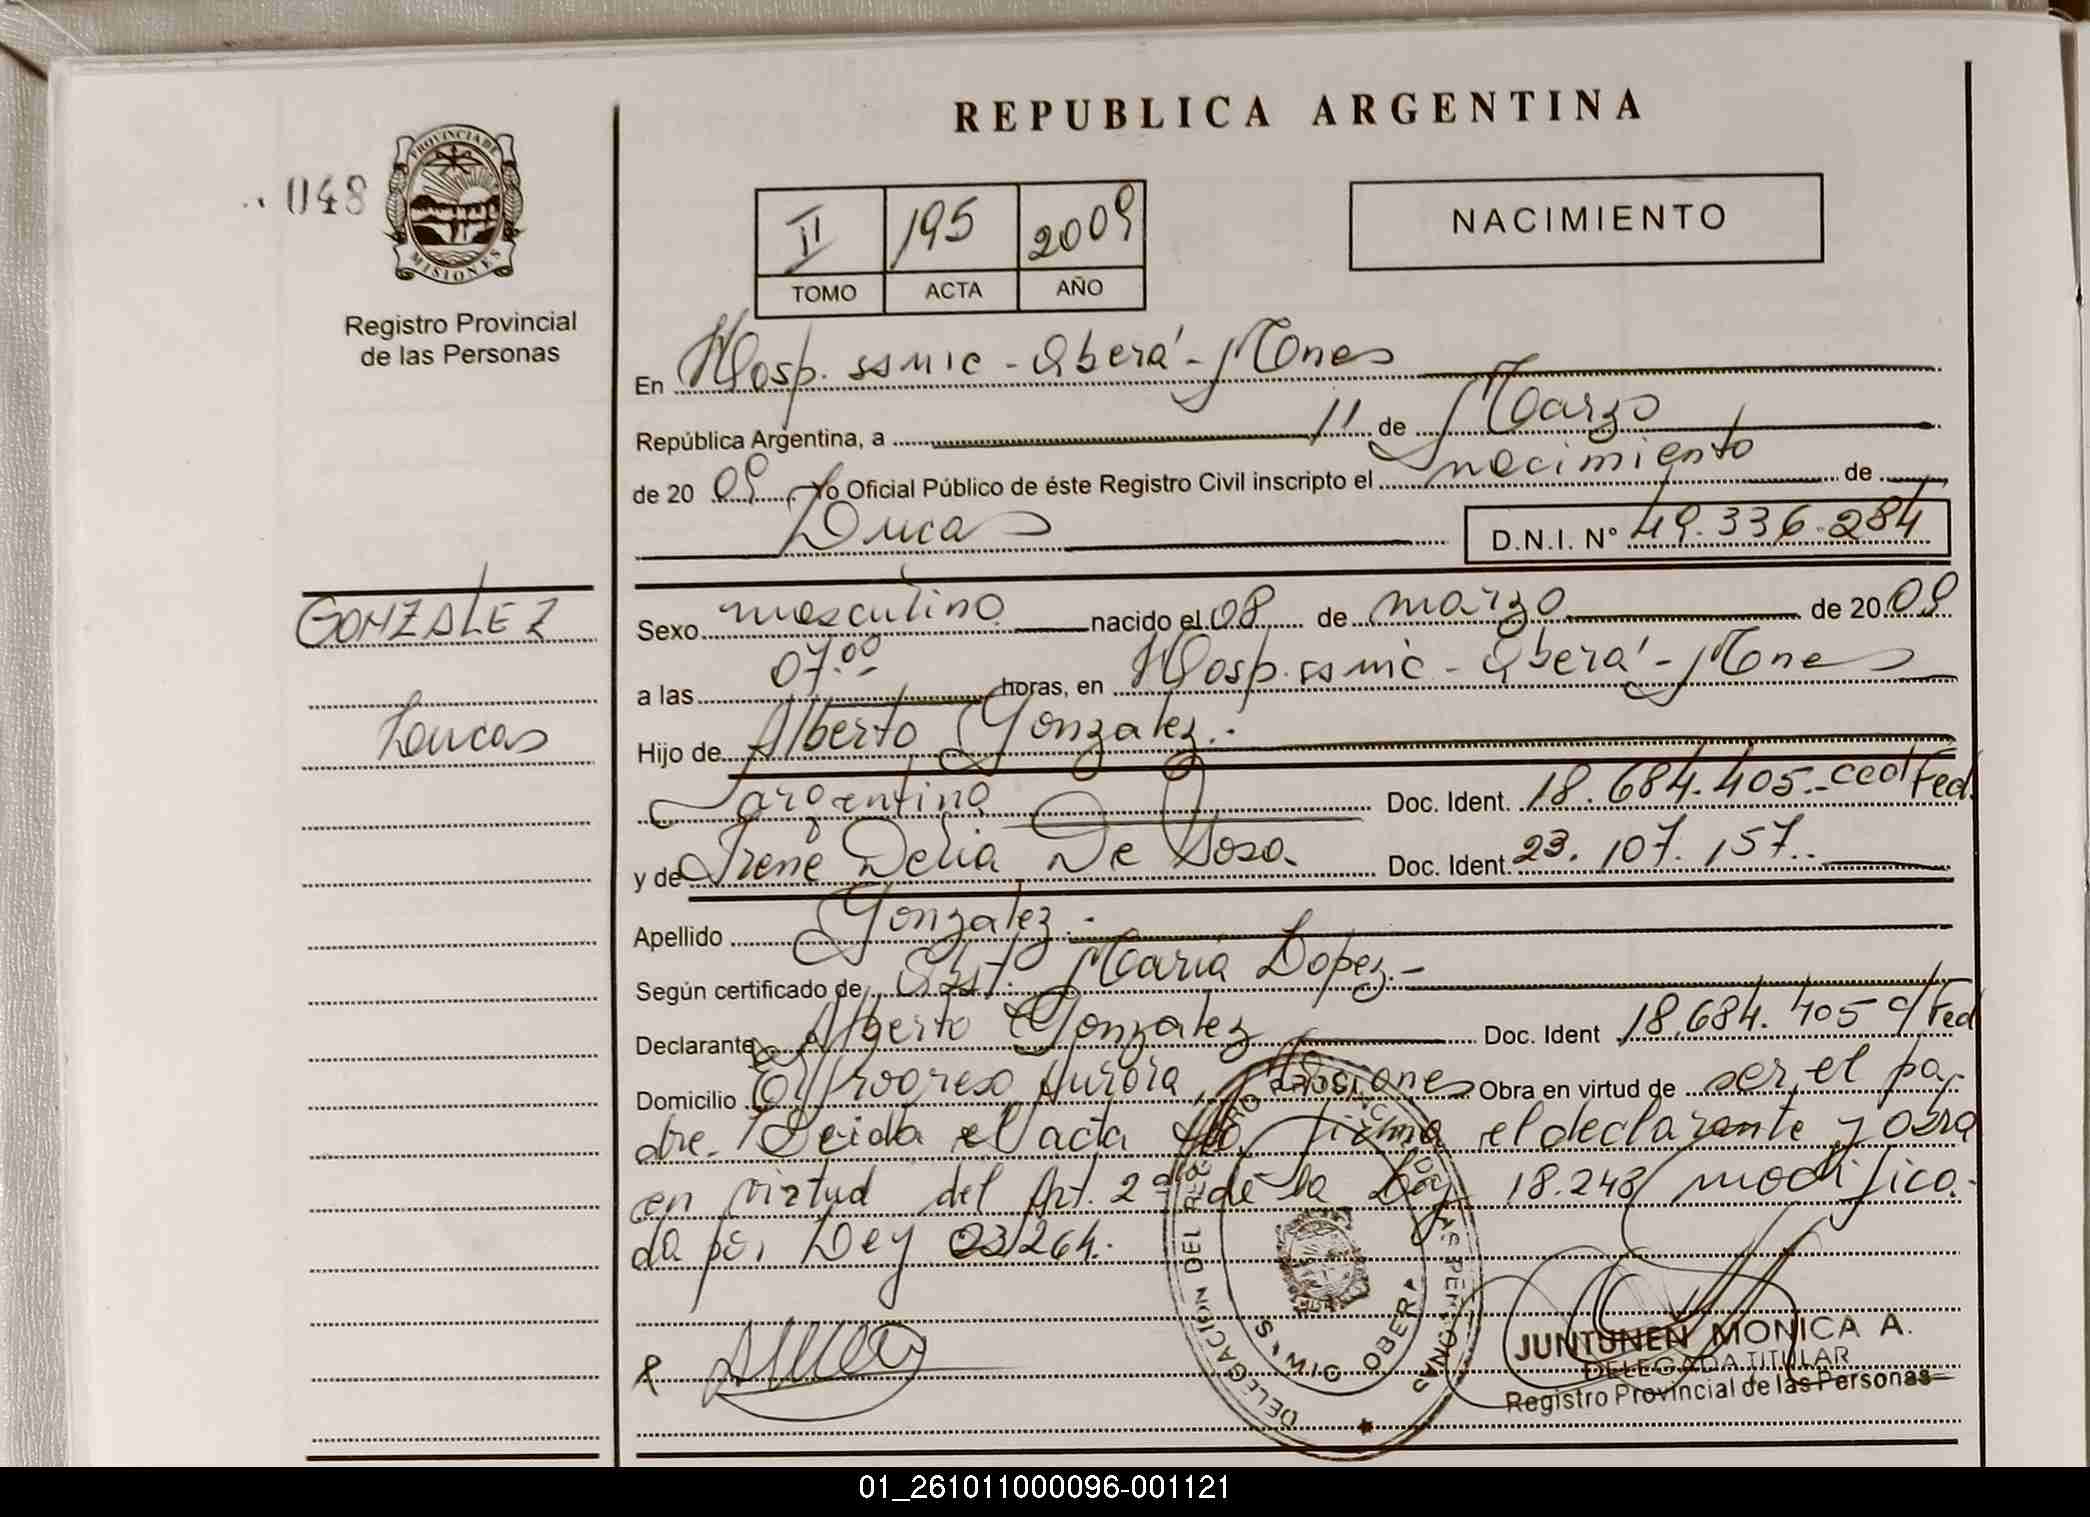 REPUBLICA ARGENTINA
048
PROVINCIA DE MISIONES
Registro Provincial
de las Personas
II 195 2009
TOMO ACTA AÑO
NACIMIENTO
En Hosp. ssmic - Oberá - Mones
República Argentina, a 11 de Marzo
de 20 09 Yo Oficial Público de éste Registro Civil inscripto el nacimiento de
Lucas D.N.I. Nº 49.336.284
GONZALEZ
Lucas
Sexo masculino nacido el 08 de marzo de 20 09
a las 07.00 horas, en Hosp. ssmic - Oberá - Mones
Hijo de Alberto Gonzalez.-
argentino Doc. Ident. 18.684.405.- ced Fed.
y de Irene Delia De Sosa Doc. Ident. 23.107.157.-
Apellido Gonzalez.-
Según certificado de Obst. Maria Lopez.-
Declarante Alberto Gonzalez Doc. Ident 18.684.405 c/Fed
Domicilio El Progreso Aurora, Misiones Obra en virtud de ser el pa-
dre. Leida el acta la firma el declarante y obra
en virtud del Art. 2 de la Ley 18.248 modifica-
da por Ley 23264.-
DELEGACION DEL REGISTRO PROVINCIAL DE LAS PERSONAS
OBERA
JUNTUNEN MONICA A.
DELEGADA TITULAR
Registro Provincial de las Personas
01_261011000096-001121